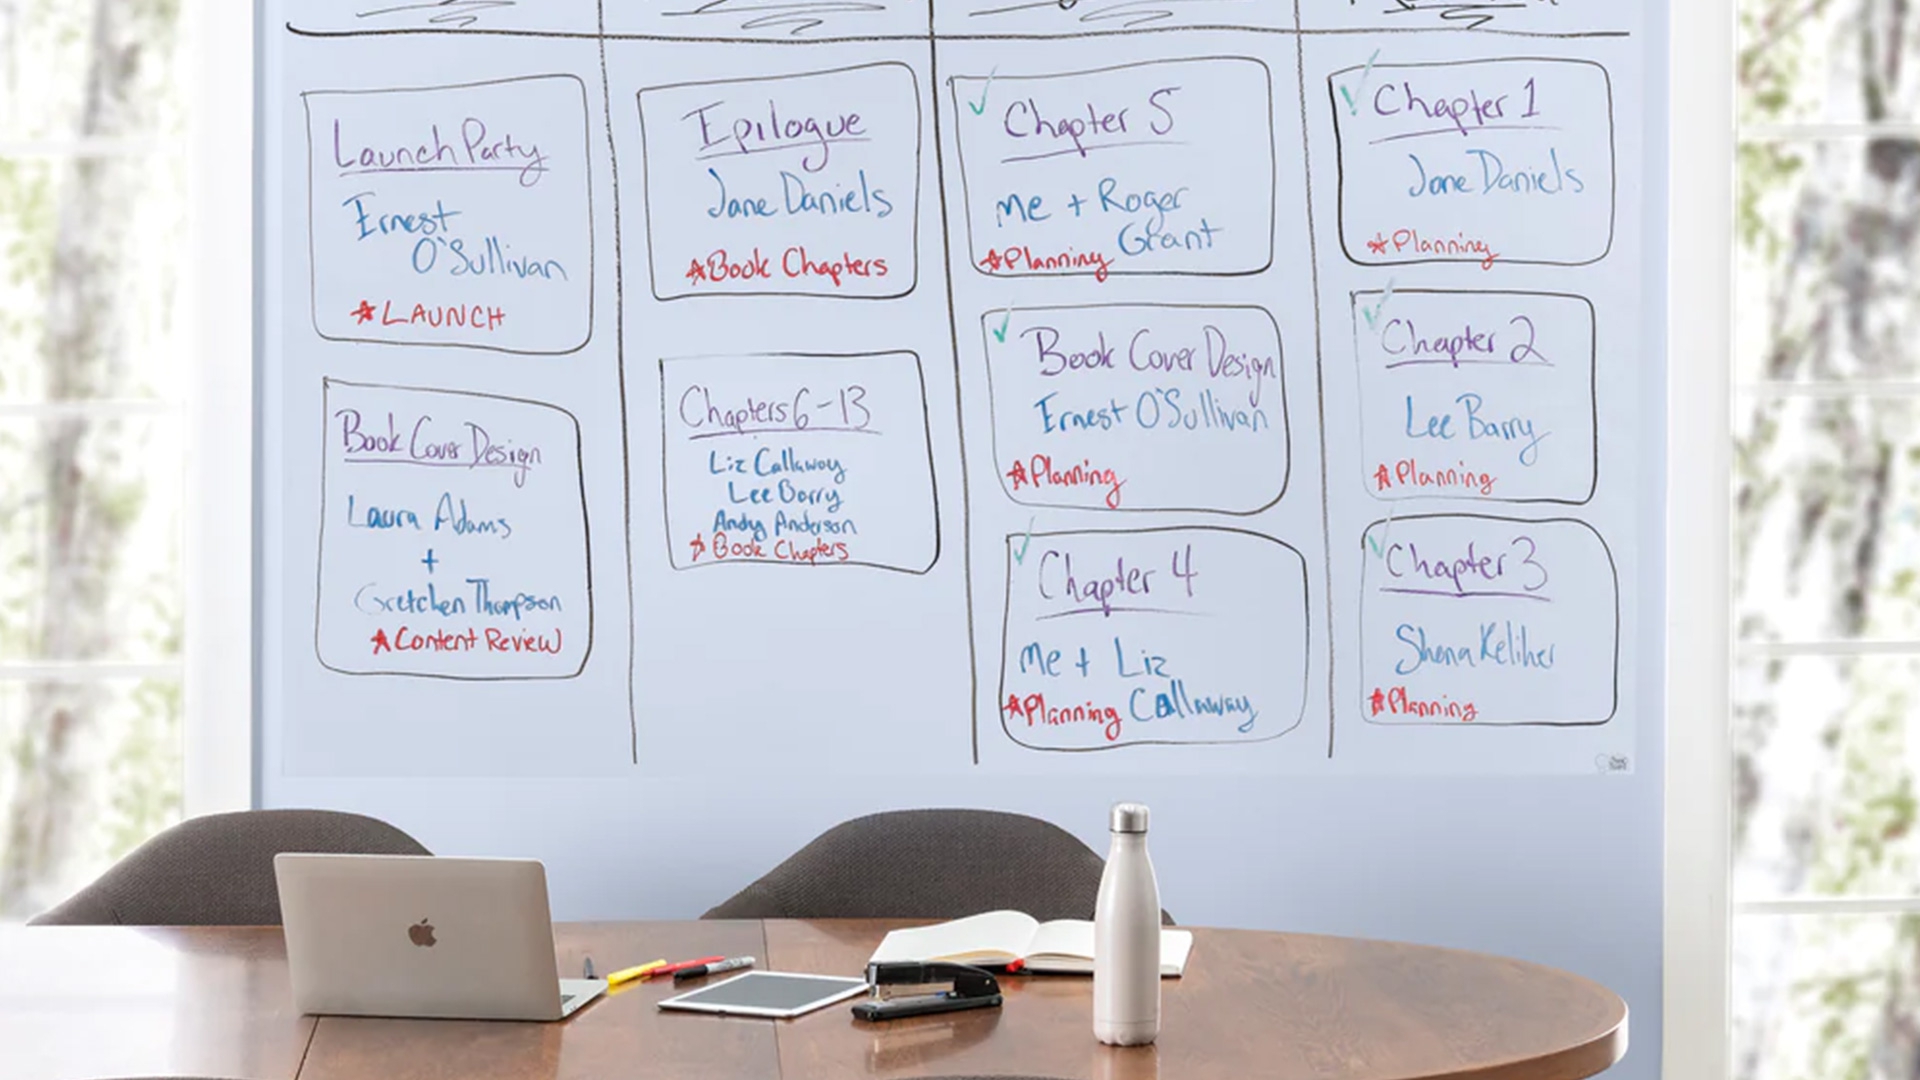 Launch Party
Ernest
O'Sullivan
LAUNCH
Book Cover Design
Laura Adams
+
Gretchen Thompson
Content Review
Epilogue
Jane Daniels
Book Chapters
Chapters 6-13
Liz Callaway
Lee Barry
Andy Anderson
Book Chapters
Chapter 5
Me + Roger
Grant
Planning
Book Cover Design
Ernest O'Sullivan
Planning
Chapter 4
Me + Liz
Callaway
Planning
Chapter 1
Jane Daniels
Planning
Chapter 2
Lee Barry
Planning
Chapter 3
Shona Keliher
Planning